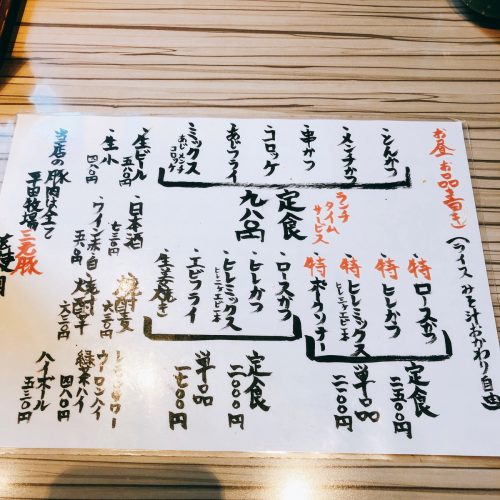 お昼 お品書き
(ライス みそ汁おかわり自由)
・とんかつ
・メンチかつ
・串かつ
・コロッケ
・あじフライ
・ミックス
あじ・メンチ
コロッケ
ランチ
タイム
サービス
定食
九八〇円
特 ロースかつ
特 ヒレかつ
特 ヒレミックス
ヒレ二ヶエビ一本
特 ポークソテー
定食
二五〇〇円
単品
二二〇〇円
・ロースかつ
・ヒレかつ
・ヒレミックス
ヒレ一ヶエビ一本
・エビフライ
・生姜焼き
定食
二〇〇〇円
単品
一七〇〇円
・生ビール
五八〇円
・生小
四八〇円
・日本酒
七三〇円
・ワイン 赤・白
焼酎麦
六三〇円
焼酎芋
六三〇円
ウーロンハイ
緑茶ハイ
四八〇円
ハイボール
五三〇円
当店の豚肉は全て
平田牧場 三元豚